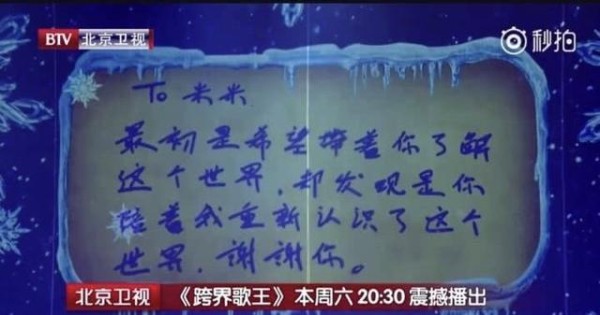 BTV 北京卫视
秒拍
To 米米
最初是希望带着你了解
这个世界,却发现是你
陪着我重新认识了这个
世界,謝謝你。
北京卫视 《跨界歌王》本周六 20:30 震撼播出